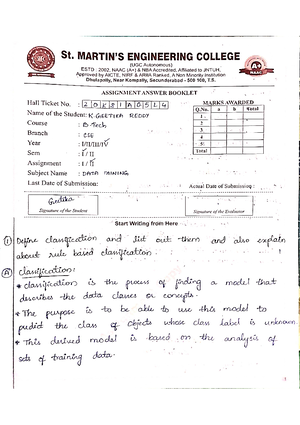 St. MARTIN'S ENGINEERING COLLEGE
(UGC Autonomous)
ESTD : 2002, NAAC (A+) & NBA Accredited, Affiliated to JNTUH,
Approved by AICTE, NIRF & ARIIA Ranked, A Non Minority Institution
Dhulapally, Near Kompally, Secunderabad - 500 100, T.S.
A+
NAAC
ASSIGNMENT ANSWER BOOKLET
Hall Ticket No. : 20K81A05L4
Name of the Student: K GEETIKA REDDY
Course : B.Tech
Branch : CSE
Year : I/II/III/IV
Sem : I/II
Assignment : I/II
Subject Name : DATA MINING
Last Date of Submission:
MARKS AWARDED
Q.No. a b Total
1.
2.
3.
4.
5.
Total
Actual Date of Submission :
Geetika
Signature of the Student
Signature of the Evaluator
Start Writing from Here
① Define classification and list out them and also explain
about rule based classification.
Ⓐ classification:
* classification is the process of finding a model that
describes the data classes or concepts.
* The purpose is to be able to use this model to
predict the class of objects whose class label is unknown.
* This derived model is based on the analysis of
sets of training data.